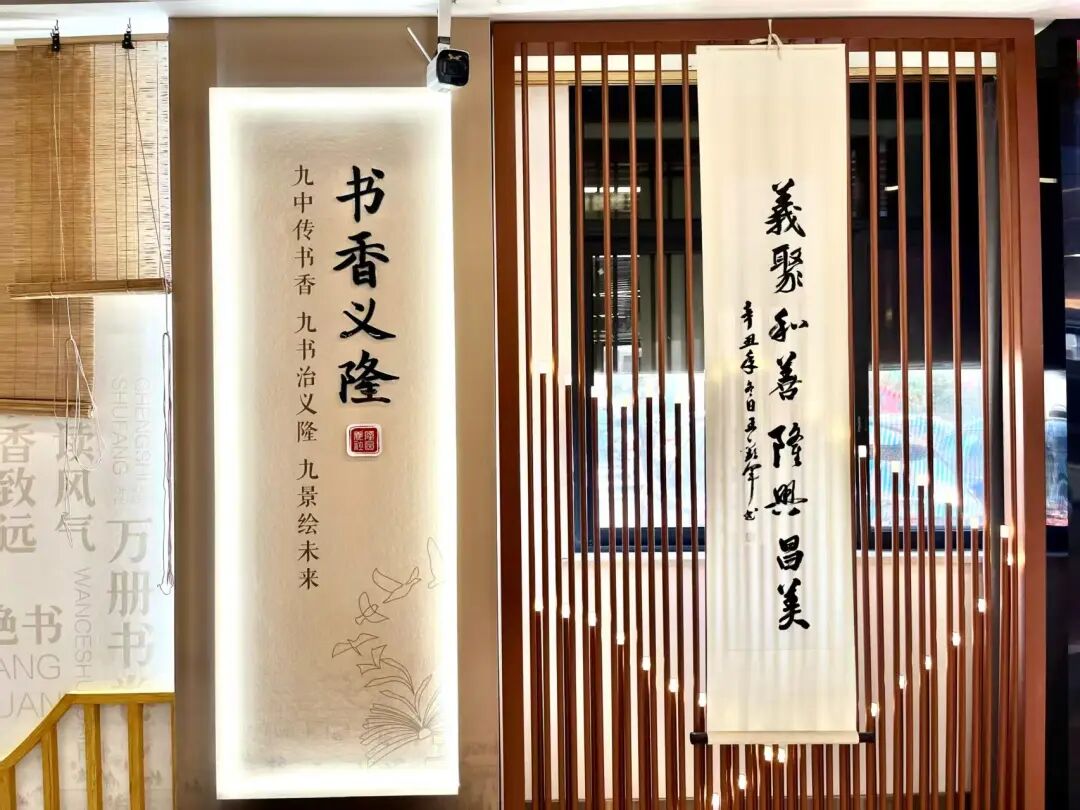 书香义隆
九中传书香 九书治义隆 九景绘未来
義聚和善隆興昌美
辛丑年冬日
读风气
香致远
万册书
书
CHENGSHI
SHUFANG
WANCESH
ANG